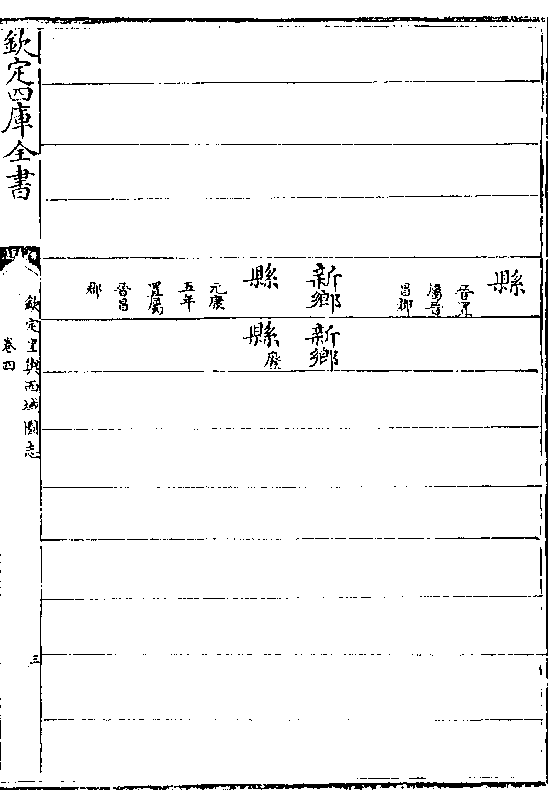 縣
晉
屬晉
昌郡
新鄉
縣
元康
五年
置屬
晉昌
郡
新鄉
縣廢
欽定四庫全書
欽定皇輿西域圖志
卷四
三